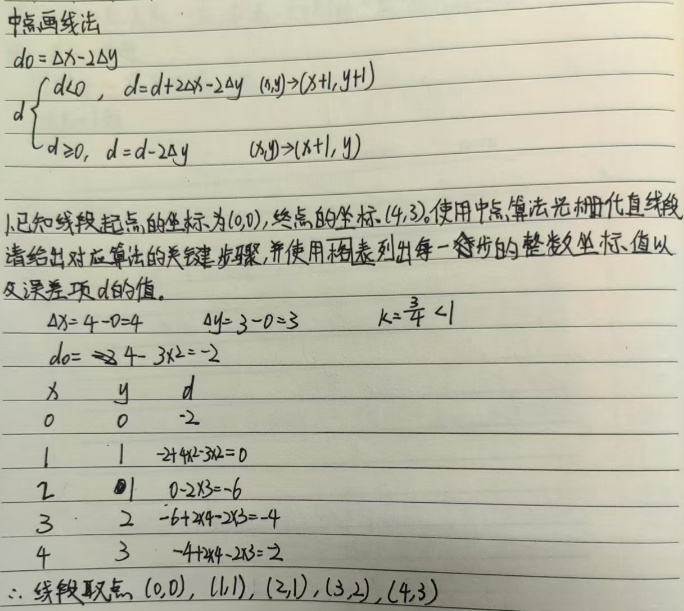 中点画线法
d0=Δx-2Δy
d { d<0, d=d+2Δx-2Δy (x,y)→(x+1,y+1)
d≥0, d=d-2Δy (x,y)→(x+1,y)
1.已知线段起点的坐标为(0,0),终点的坐标(4,3)。使用中点算法光栅化直线段
请给出对应算法的关键步骤,并使用图表列出每一步的整数坐标值以
及误差项d的值。
Δx=4-0=4 Δy=3-0=3 k=3/4<1
d0= 4-3×2=-2
x y d
0 0 -2
1 1 -2+4×2-3×2=0
2 1 0-2×3=-6
3 2 -6+2×4-2×3=-4
4 3 -4+2×4-2×3=-2
∴线段取点(0,0),(1,1),(2,1),(3,2),(4,3)